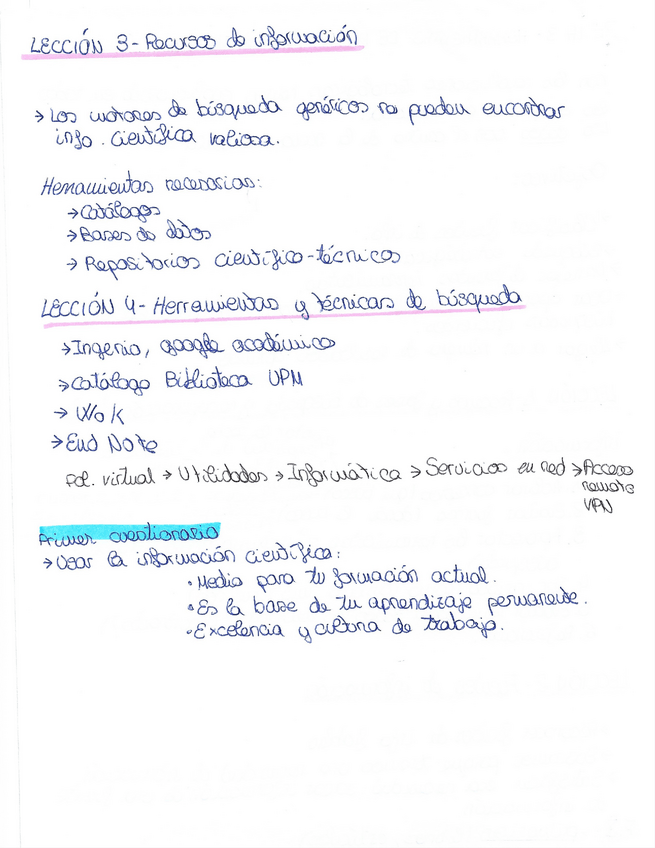 LECCIÓN 3- Recursos de información
→ Los motores de búsqueda genéricos no pueden encontrar
info. científica valiosa.
Herramientas necesarias:
→ Catálogos
→ Bases de datos
→ Repositorios científico-técnicos
LECCIÓN 4- Herramientas y técnicas de búsqueda
→ Ingenio, google académico
→ Catálogo Biblioteca UPM
→ WoK
→ End Note
pol. virtual → Utilidades → Informática → Servicios en red → Acceso
remoto
VPN
Primer cuestionario
→ Usar la información científica:
• Medio para tu formación actual.
• Es la base de tu aprendizaje permanente.
• Excelencia y cultura de trabajo.